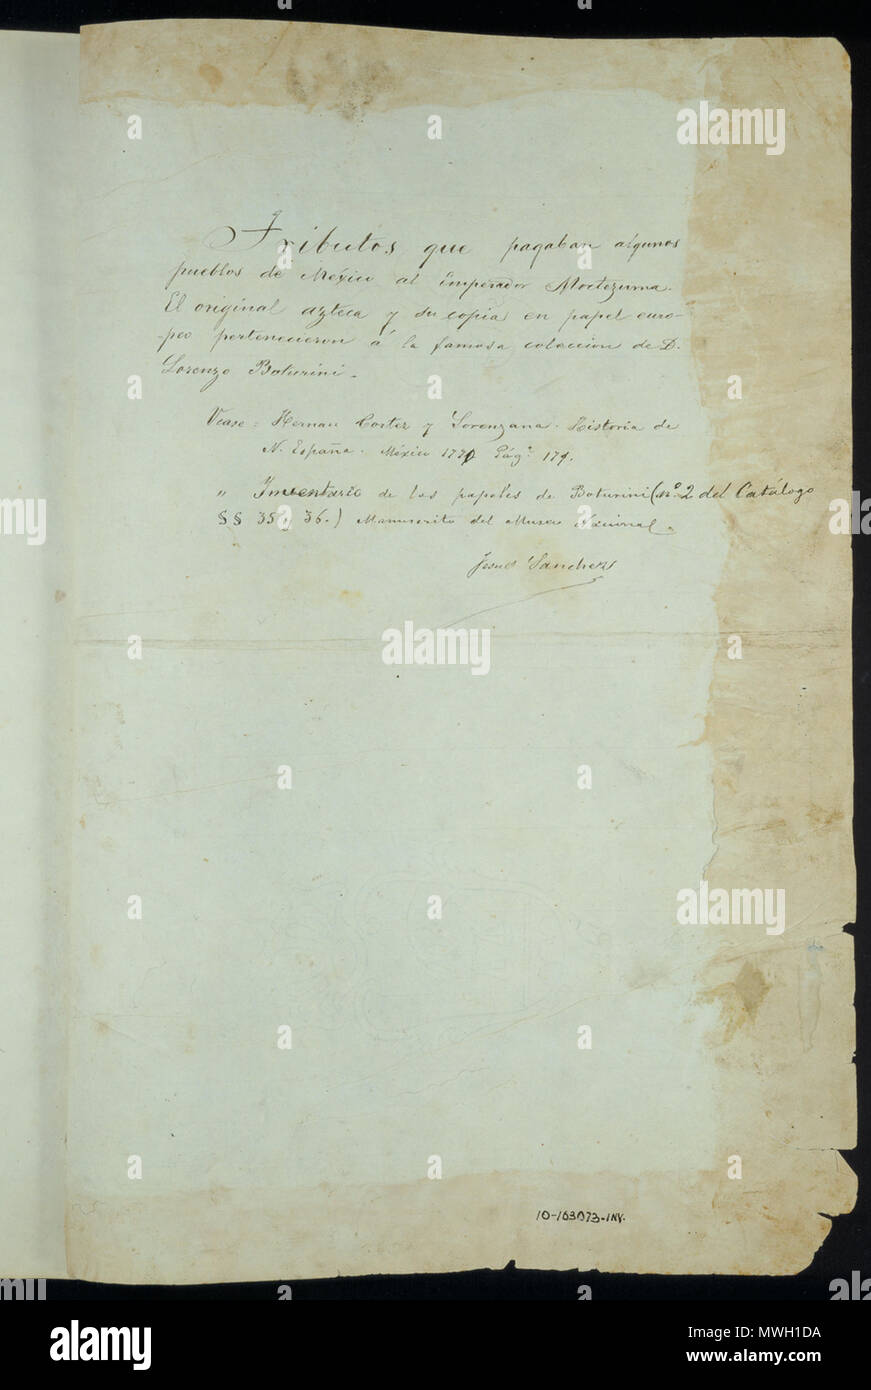 Tributos que pagaban algunos
pueblos de México al Emperador Moctezuma.
El original azteca y su copia en papel euro-
-peo pertenecieron á la famosa coleccion de D.
Lorenzo Boturini.
Vease = Hernan Cortez y Lorenzana. Historia de
N. España. México 1770 Pág.ª 171.
" Inventario de los papeles de Boturini (nº 2 del Catálogo
§§ 35 y 36.) Manuscrito del Museo Nacional.
Jesus Sanchez
10-163073-INV.
alamy
Image ID: MWH1DA
www.alamy.com